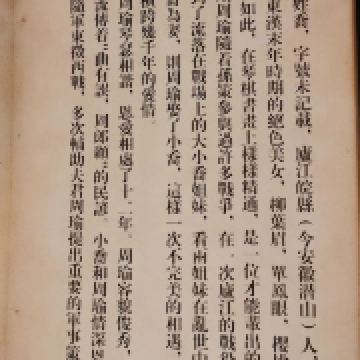 姓喬，字號未記載，廬江皖縣（今安徽潛山）人
東漢末年時期的絕色美女，柳葉眉，單鳳眼，櫻
如此，在琴棋書畫上樣樣精通，是一位才能輩出的
周瑜隨着孫策參與過許多戰爭，在一次廬江的戰役
了流落在戰場上的大小喬姐妹，看兩姐妹在亂世中
喬為妻，則周瑜娶了小喬，這樣一次不完美的相遇
橫跨幾千年的愛情
周瑜琴瑟相諧，恩愛相處了十二年。周瑜容貌俊秀，
流傳着：曲有誤，周郎顧：的民謠。小喬和周瑜情深
隨軍東徵西戰，多次輔助夫君周瑜提出重要的軍事策